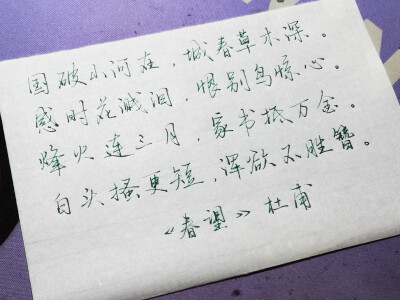 国破山河在，城春草木深。
感时花溅泪，恨别鸟惊心。
烽火连三月，家书抵万金。
白头搔更短，浑欲不胜簪。
《春望》 杜甫